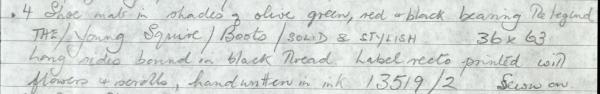 . 4 Shoe mats in shades of olive green, red & black bearing the legend
THE / Young Squire / Boots / SOLID & STYLISH 36 x 63
Long sides bound in black thread Label recto printed with
flowers & scrolls, handwritten in ink 13519/2 Sewn on